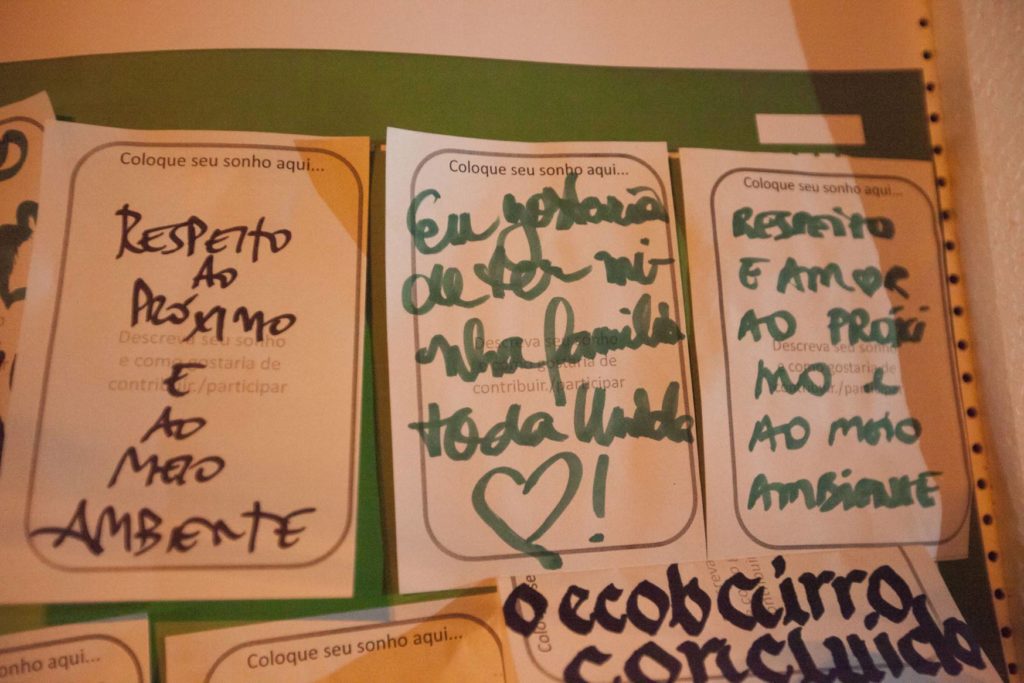 Coloque seu sonho aqui...
RESPEITO
AO
PRÓXIMO
Descreva seu sonho
e como gostaria de
contribuir./participar
E
AO
MEIO
AMBIENTE
Coloque seu sonho aqui...
Eu gostaria
de ter mi-
nha família
Descreva seu sonho
e como gostaria de
contribuir./participar
toda Unida
♡!
Coloque seu sonho aqui...
RESPEITO
E AMOR
AO PRÓXI
Descreva seu sonho
e como gostaria de
MO E
AO MEIO
AMBIENTE
nho aqui...
Coloque seu sonho aqui...
o ecobairro,
concluído